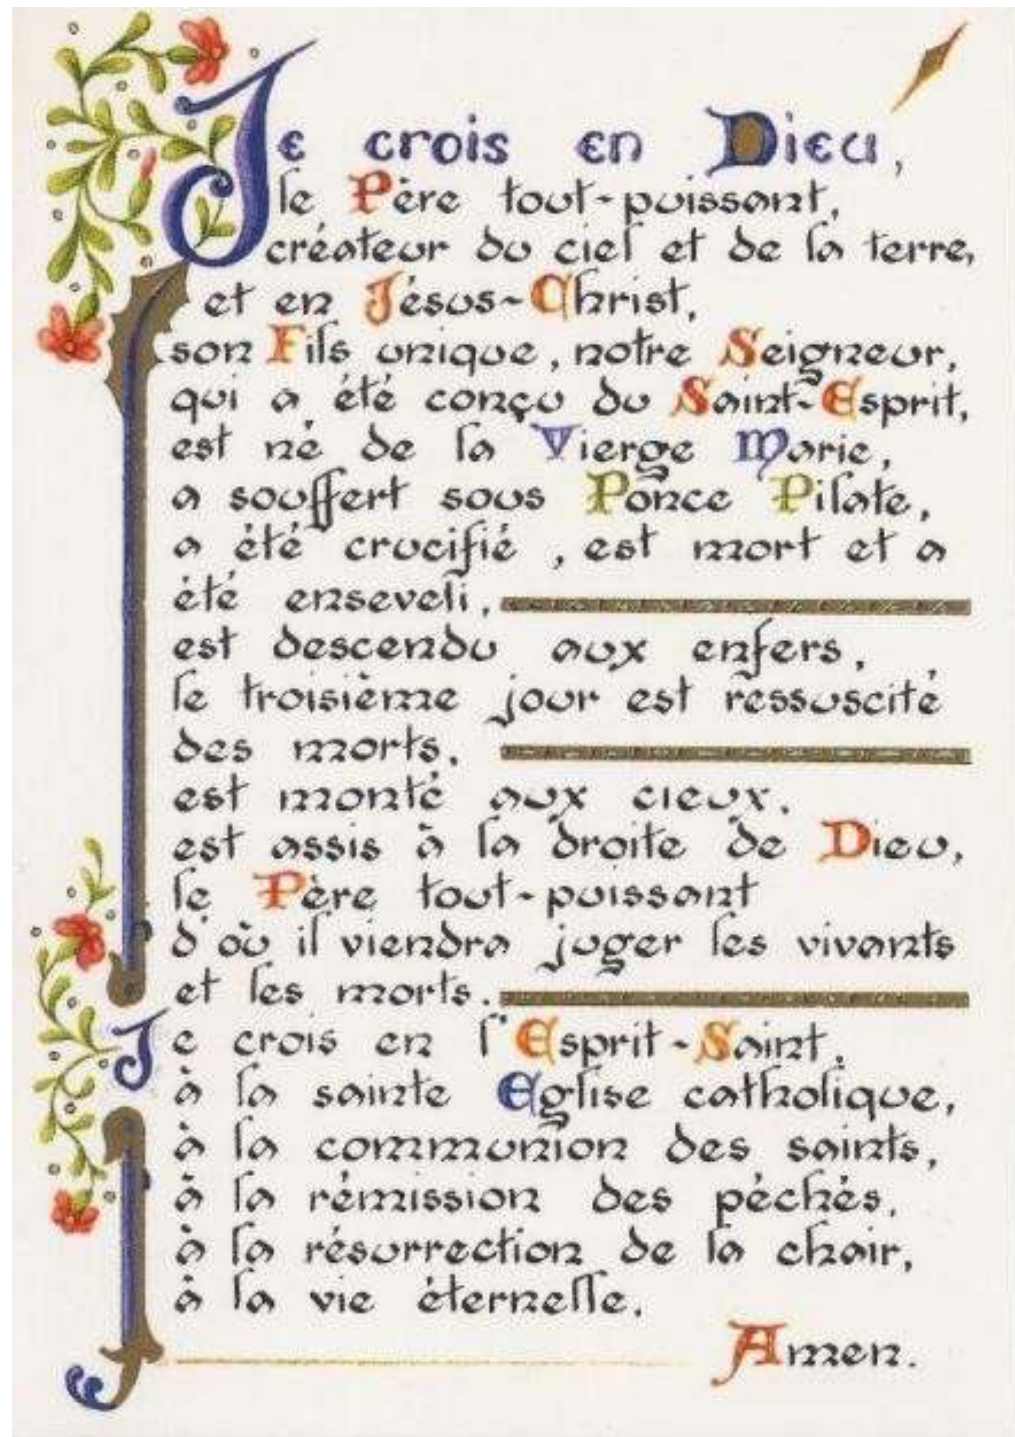 Je crois en Dieu,
le Père tout-puissant,
créateur du ciel et de la terre,
et en Jésus-Christ,
son Fils unique, notre Seigneur,
qui a été conçu du Saint-Esprit,
est né de la Vierge Marie,
a souffert sous Ponce Pilate,
a été crucifié, est mort et a
été enseveli,
est descendu aux enfers,
le troisième jour est ressuscité
des morts,
est monté aux cieux,
est assis à la droite de Dieu,
le Père tout-puissant
d'où il viendra juger les vivants
et les morts.
Je crois en l'Esprit-Saint,
à la sainte Eglise catholique,
à la communion des saints,
à la rémission des péchés,
à la résurrection de la chair,
à la vie éternelle.
Amen.